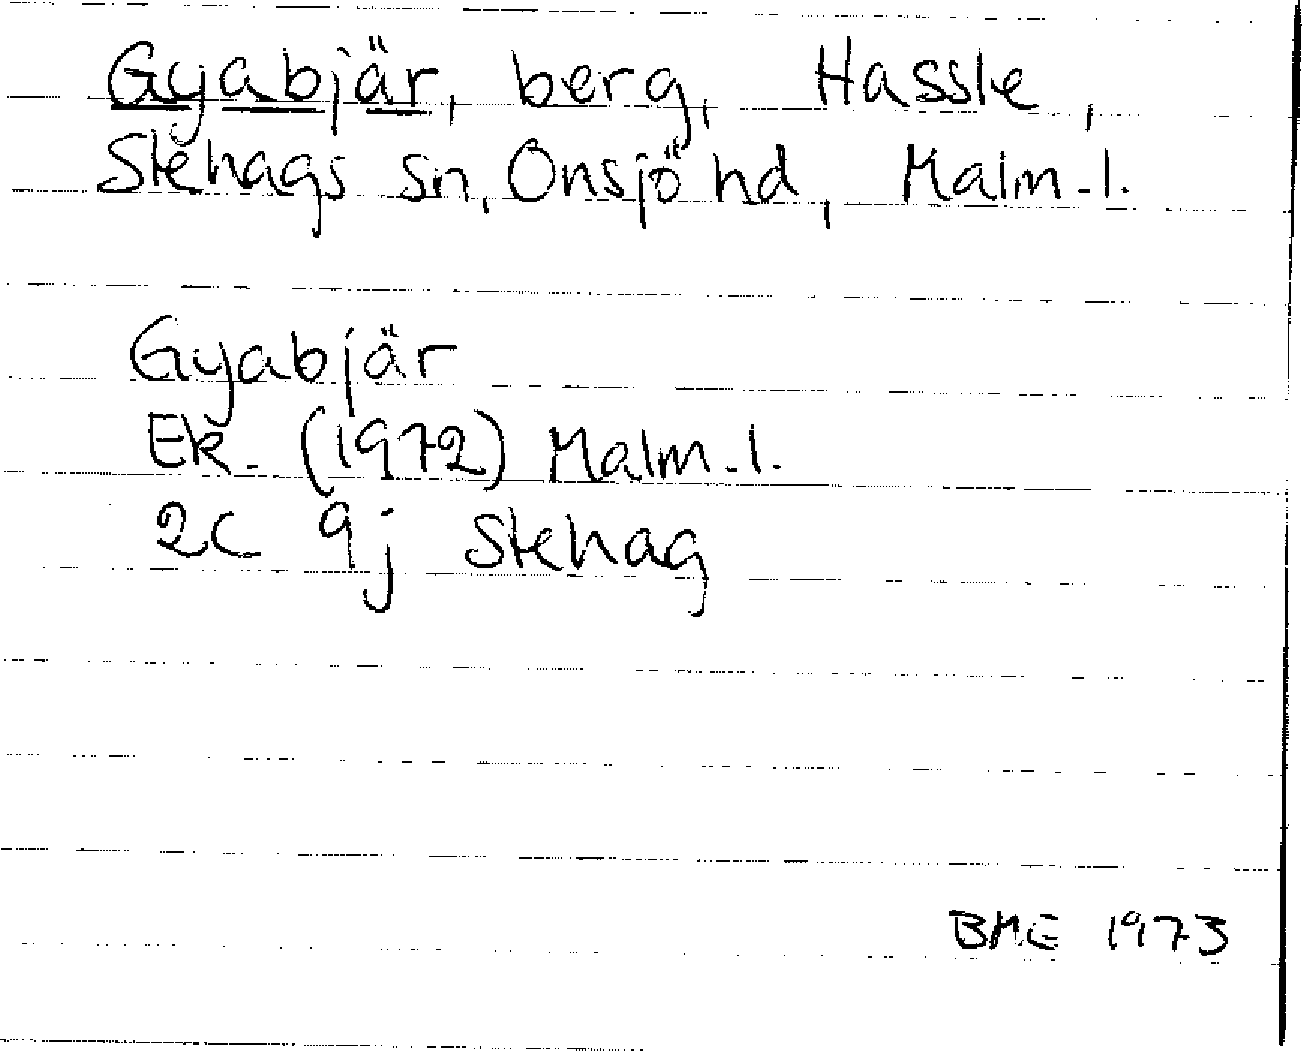 Gyabjär, berg, Hassle,
Stehags sn, Onsjö hd, Malm.l.
Gyabjär
Ek. (1972) Malm.l.
2C 9j Stehag
BME 1973